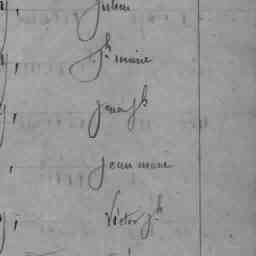 Julien
Jh marie
Jean Jh
jean marie
Victor Jh